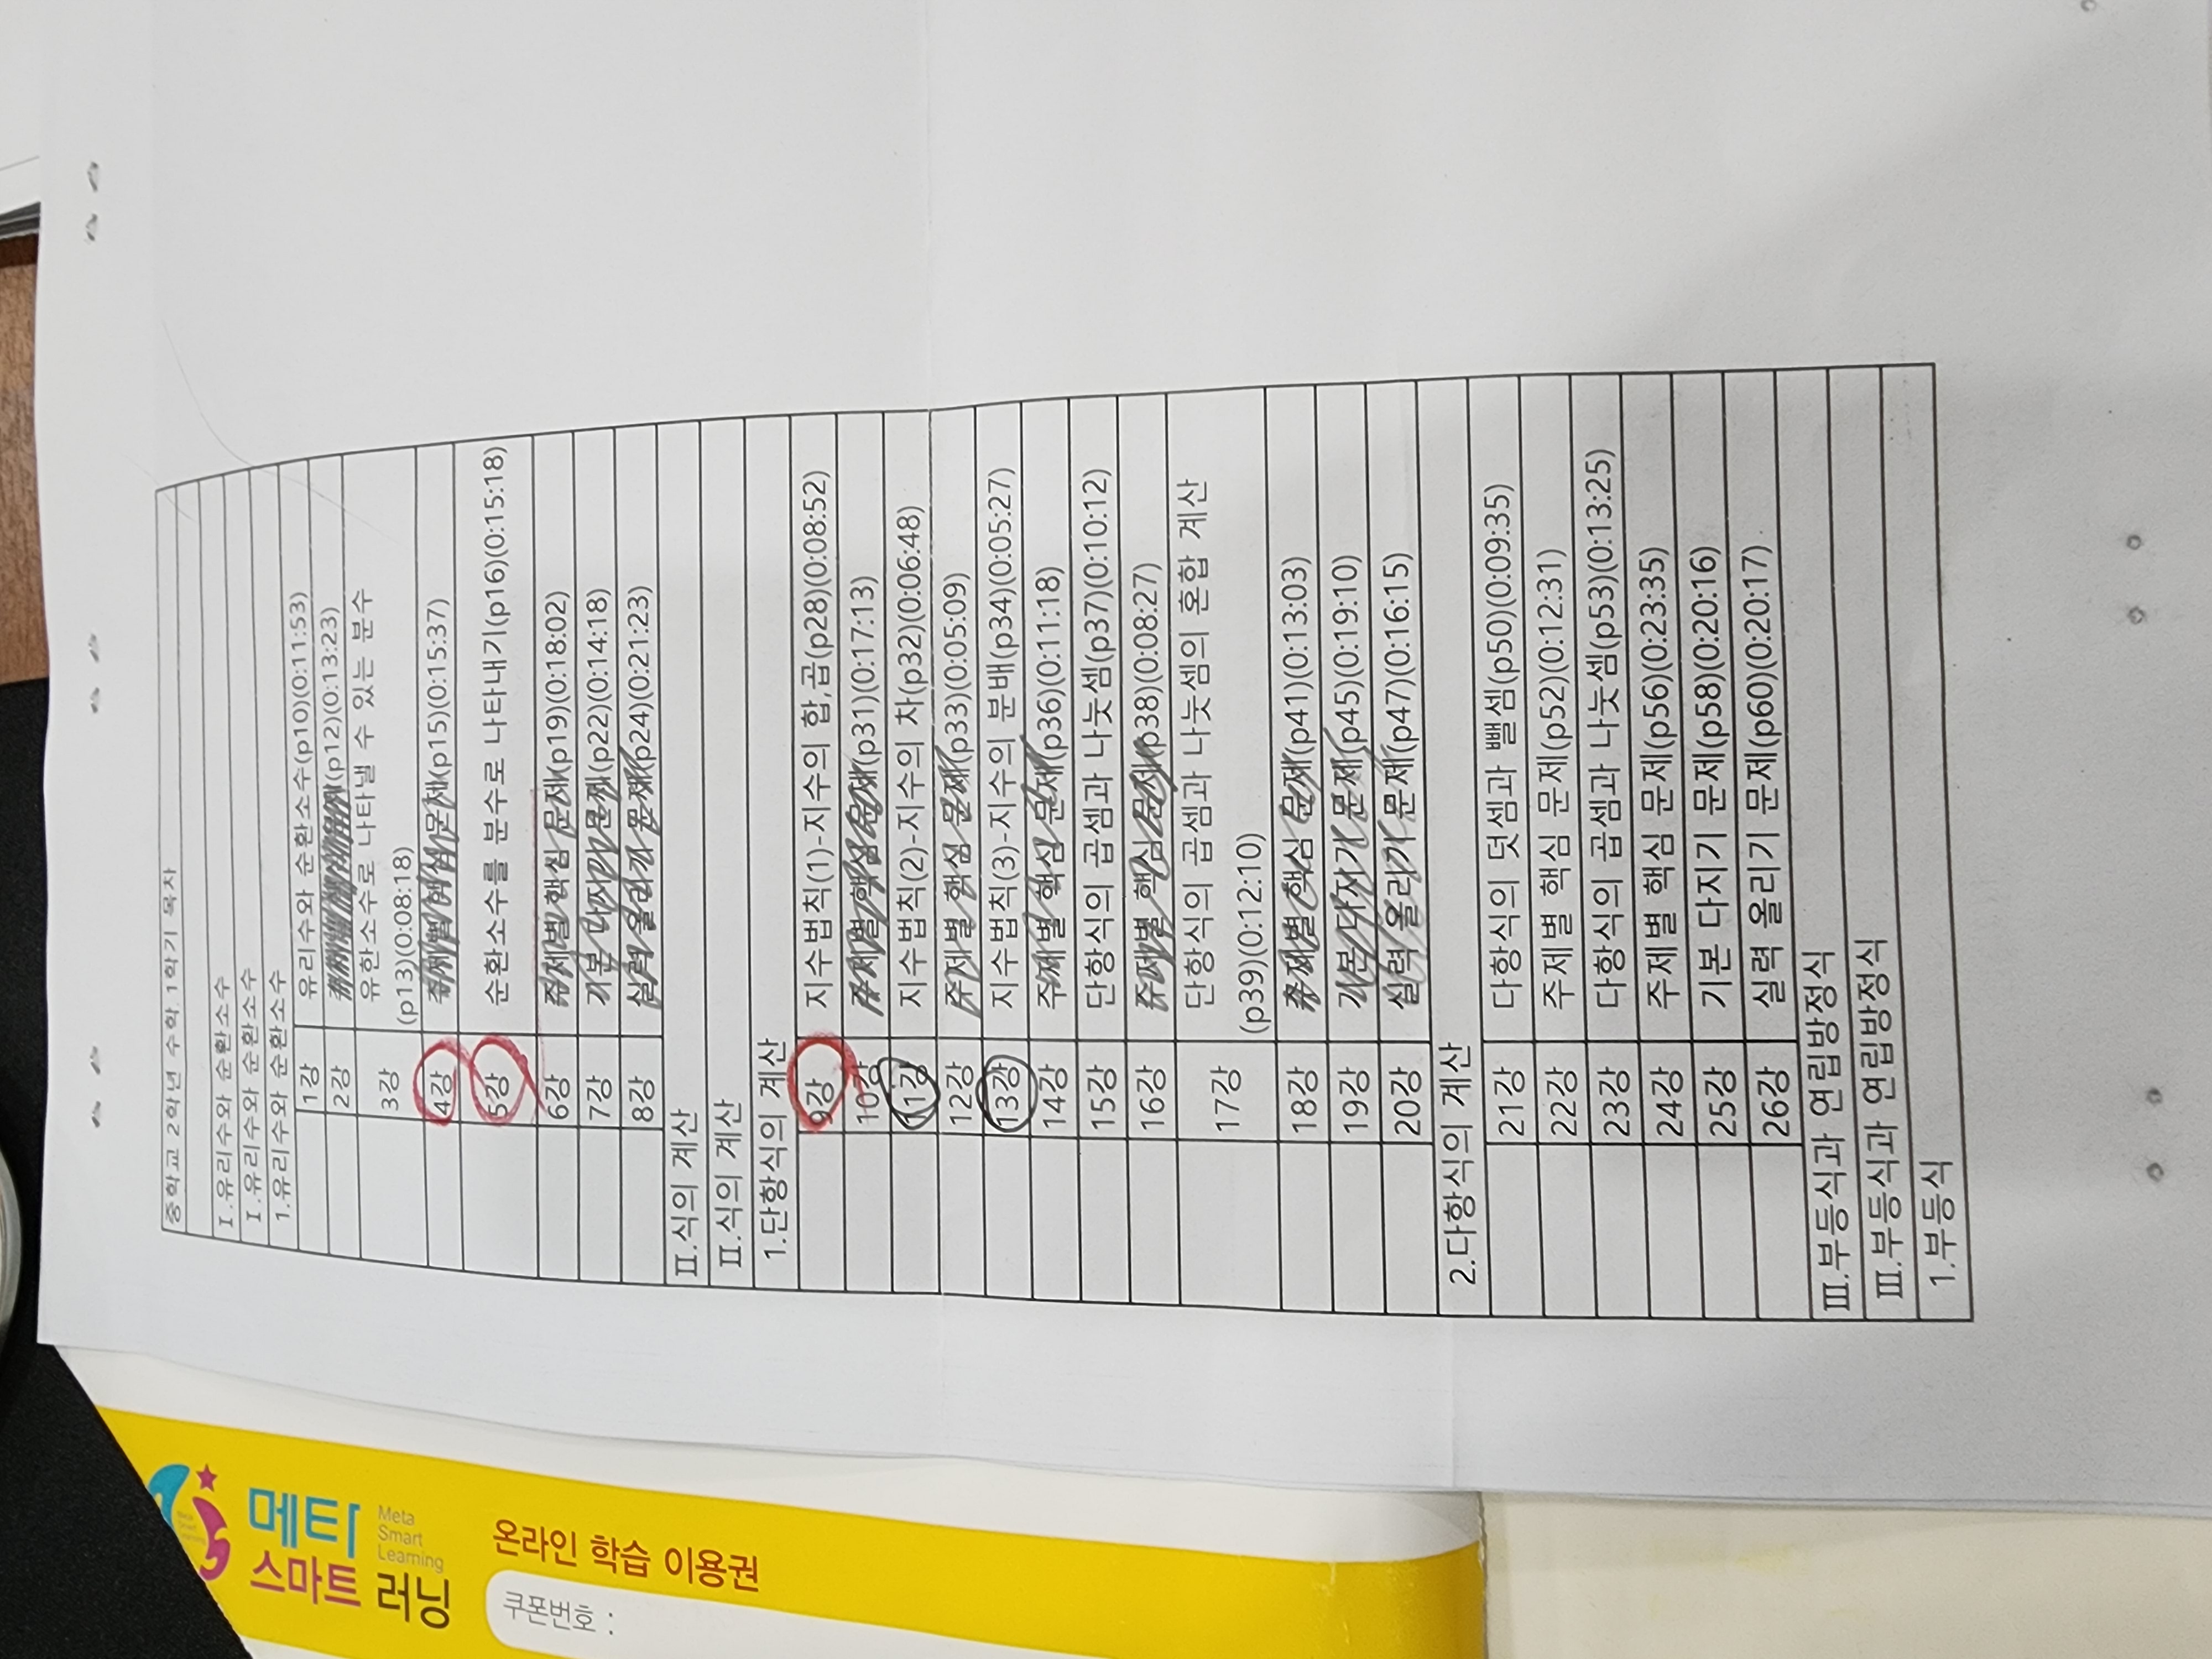 중학교 2학년 수학. 1학기 목차
Ⅰ.유리수와 순환소수
Ⅰ.유리수와 순환소수
1.유리수와 순환소수
1강 유리수와 순환소수(p10)(0:11:53)
2강 (p12)(0:13:23)
3강 유한소수로 나타낼 수 있는 분수
(p13)(0:08:18)
4강 주제별 핵심 문제(p15)(0:15:37)
5강 순환소수를 분수로 나타내기(p16)(0:15:18)
6강 주제별 핵심 문제(p19)(0:18:02)
7강 기본 다지기 문제(p22)(0:14:18)
8강 실력 올리기 문제(p24)(0:21:23)
Ⅱ.식의 계산
Ⅱ.식의 계산
1.단항식의 계산
9강 지수법칙(1)-지수의 합,곱(p28)(0:08:52)
10강 주제별 핵심 문제(p31)(0:17:13)
11강 지수법칙(2)-지수의 차(p32)(0:06:48)
12강 주제별 핵심 문제(p33)(0:05:09)
13강 지수법칙(3)-지수의 분배(p34)(0:05:27)
14강 주제별 핵심 문제(p36)(0:11:18)
15강 단항식의 곱셈과 나눗셈(p37)(0:10:12)
16강 주제별 핵심 문제(p38)(0:08:27)
17강 단항식의 곱셈과 나눗셈의 혼합 계산
(p39)(0:12:10)
18강 주제별 핵심 문제(p41)(0:13:03)
19강 기본 다지기 문제(p45)(0:19:10)
20강 실력 올리기 문제(p47)(0:16:15)
2.다항식의 계산
21강 다항식의 덧셈과 뺄셈(p50)(0:09:35)
22강 주제별 핵심 문제(p52)(0:12:31)
23강 다항식의 곱셈과 나눗셈(p53)(0:13:25)
24강 주제별 핵심 문제(p56)(0:23:35)
25강 기본 다지기 문제(p58)(0:20:16)
26강 실력 올리기 문제(p60)(0:20:17)
Ⅲ.부등식과 연립방정식
Ⅲ.부등식과 연립방정식
1.부등식
메타
스마트 러닝
Meta
Smart
Learning
온라인 학습 이용권
쿠폰번호 :